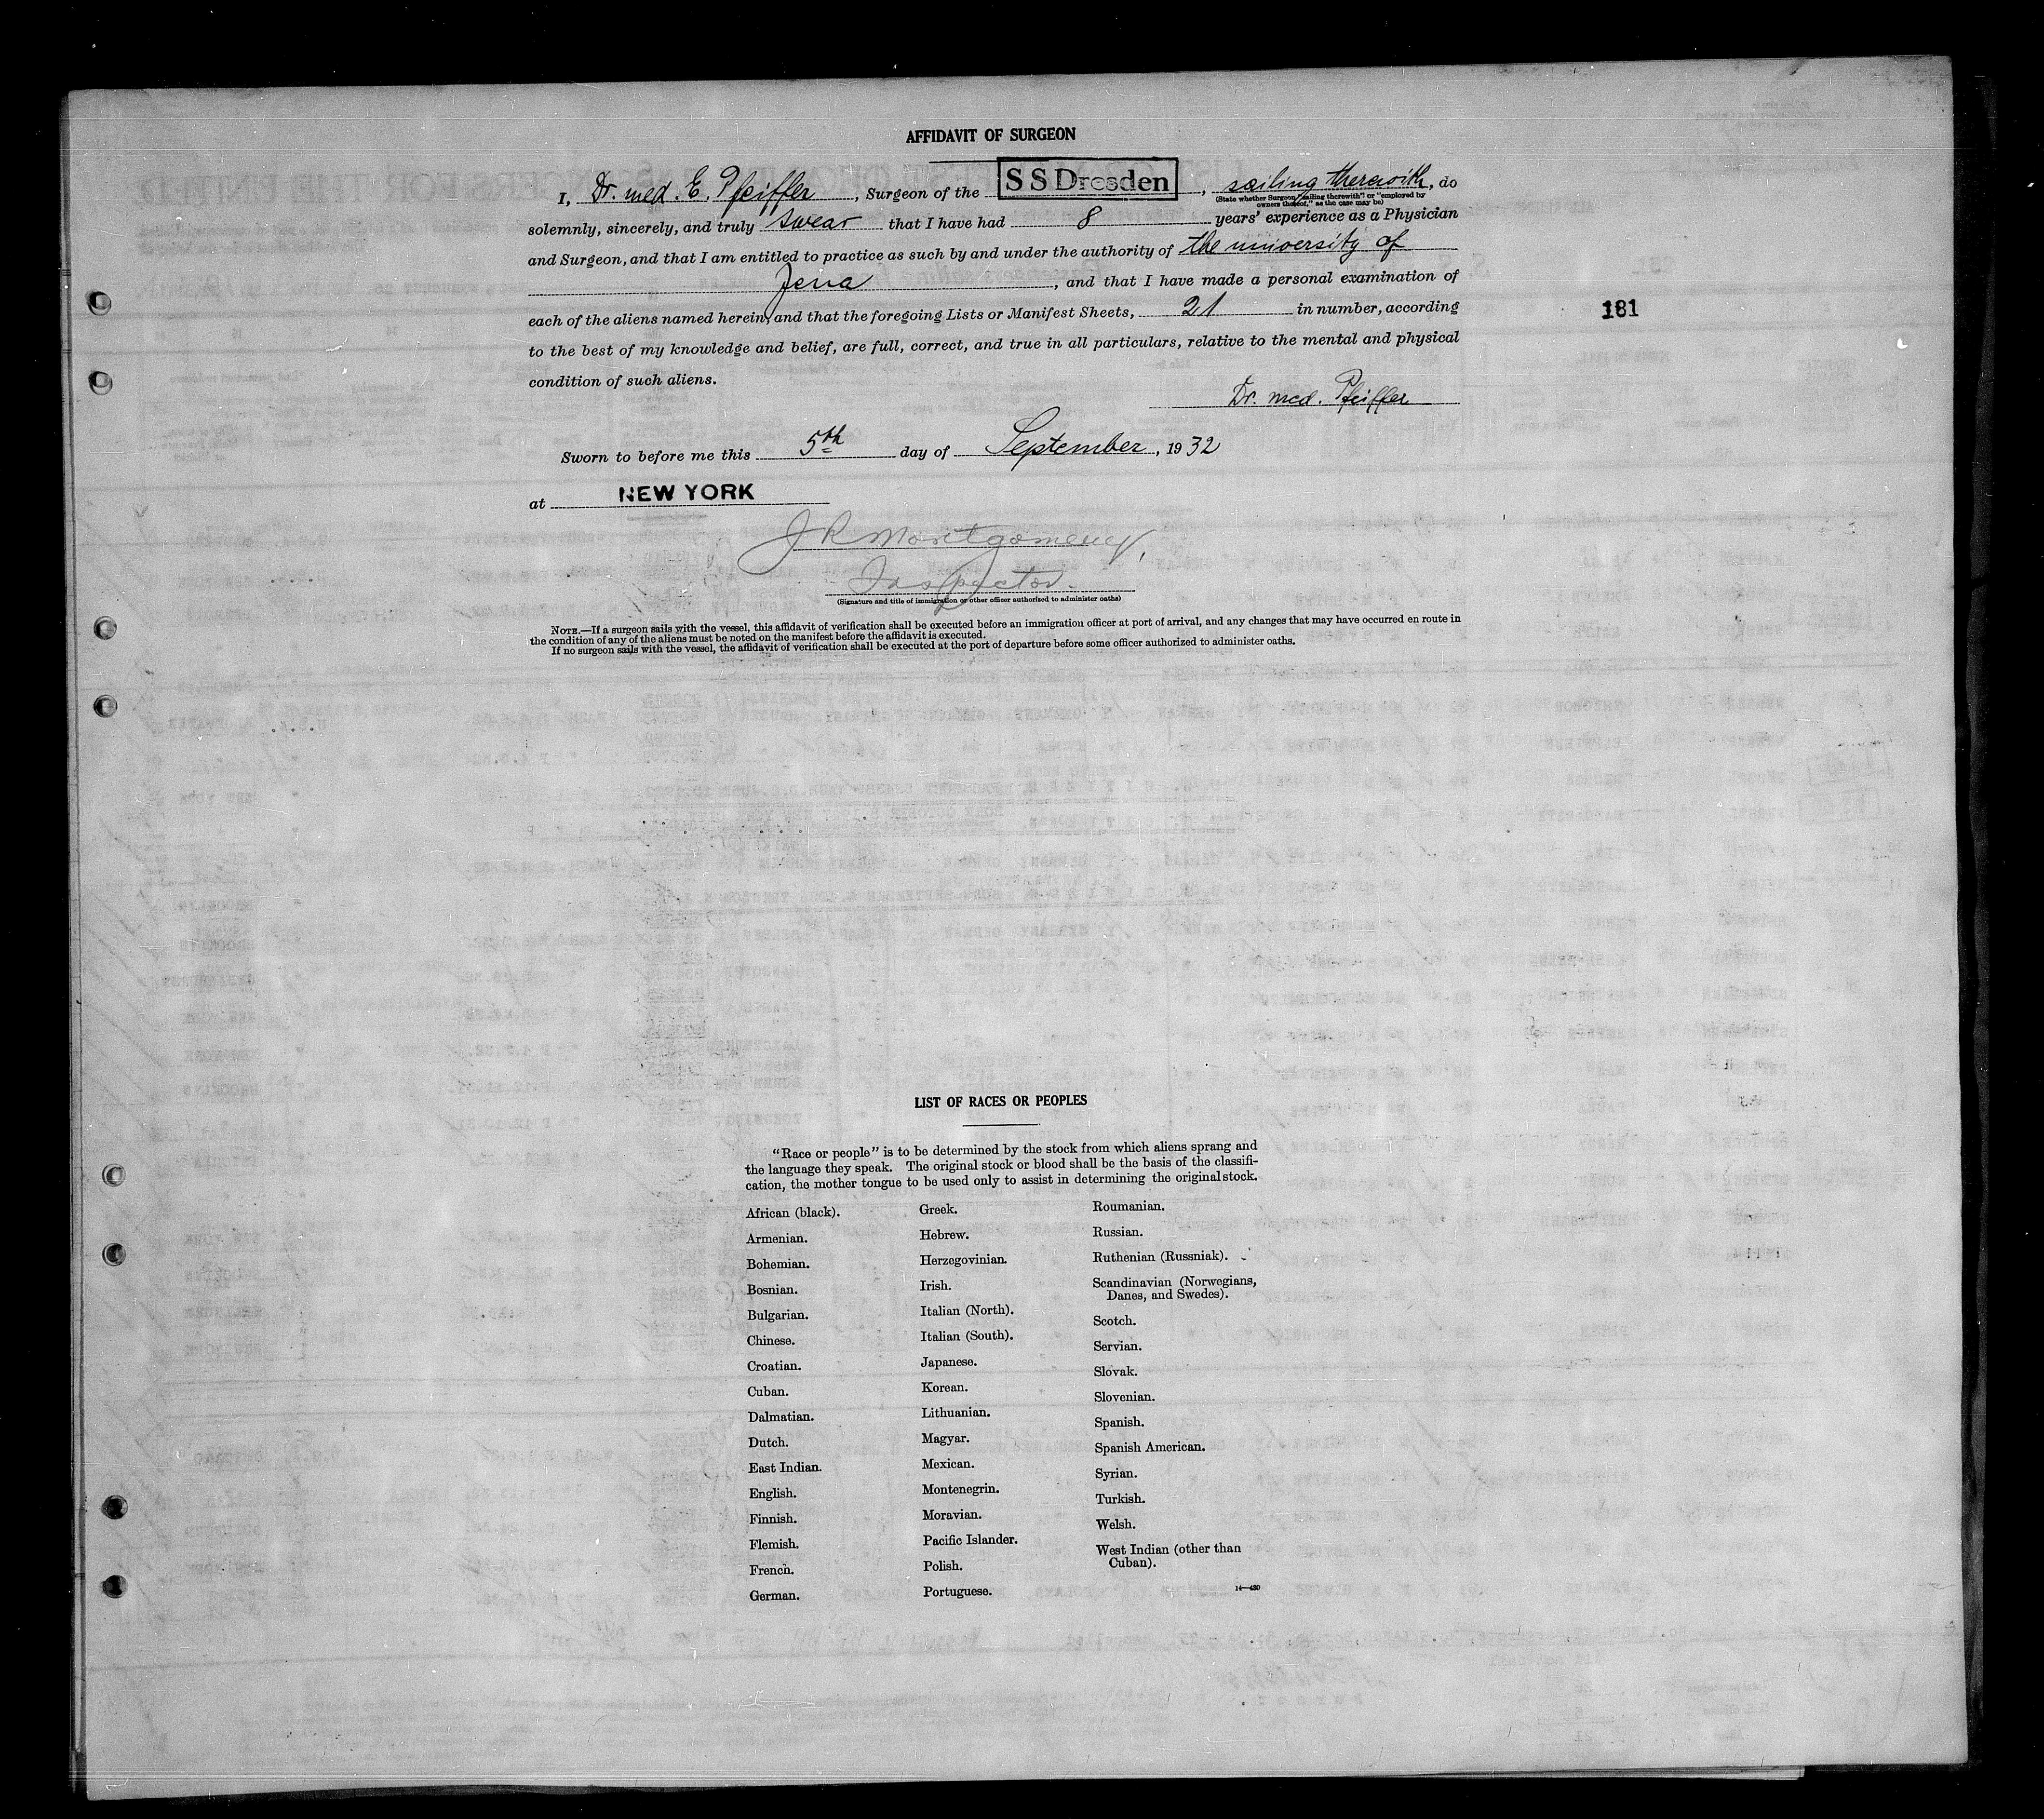 AFFIDAVIT OF SURGEON
I, Dr. med. E. Pfeiffer, Surgeon of the SS Dresden, sailing therewith, do
(State whether Surgeon "sailing therewith" or "employed by owners thereof," as the case may be)
solemnly, sincerely, and truly swear that I have had 8 years' experience as a Physician
and Surgeon, and that I am entitled to practice as such by and under the authority of the university of
Jena, and that I have made a personal examination of
each of the aliens named herein, and that the foregoing Lists or Manifest Sheets, 21 in number, according
181
to the best of my knowledge and belief, are full, correct, and true in all particulars, relative to the mental and physical
condition of such aliens.
Dr. med. Pfeiffer
Sworn to before me this 5th day of September, 1932
at NEW YORK
J R Montgomery,
Inspector.
(Signature and title of immigration or other officer authorized to administer oaths)
NOTE.—If a surgeon sails with the vessel, this affidavit of verification shall be executed before an immigration officer at port of arrival, and any changes that may have occurred en route in
the condition of any of the aliens must be noted on the manifest before the affidavit is executed.
If no surgeon sails with the vessel, the affidavit of verification shall be executed at the port of departure before some officer authorized to administer oaths.
LIST OF RACES OR PEOPLES
"Race or people" is to be determined by the stock from which aliens sprang and
the language they speak. The original stock or blood shall be the basis of the classifi-
cation, the mother tongue to be used only to assist in determining the original stock.
African (black).
Armenian.
Bohemian.
Bosnian.
Bulgarian.
Chinese.
Croatian.
Cuban.
Dalmatian.
Dutch.
East Indian.
English.
Finnish.
Flemish.
French.
German.
Greek.
Hebrew.
Herzegovinian.
Irish.
Italian (North).
Italian (South).
Japanese.
Korean.
Lithuanian.
Magyar.
Mexican.
Montenegrin.
Moravian.
Pacific Islander.
Polish.
Portuguese.
Roumanian.
Russian.
Ruthenian (Russniak).
Scandinavian (Norwegians,
Danes, and Swedes).
Scotch.
Servian.
Slovak.
Slovenian.
Spanish.
Spanish American.
Syrian.
Turkish.
Welsh.
West Indian (other than
Cuban).
14—430